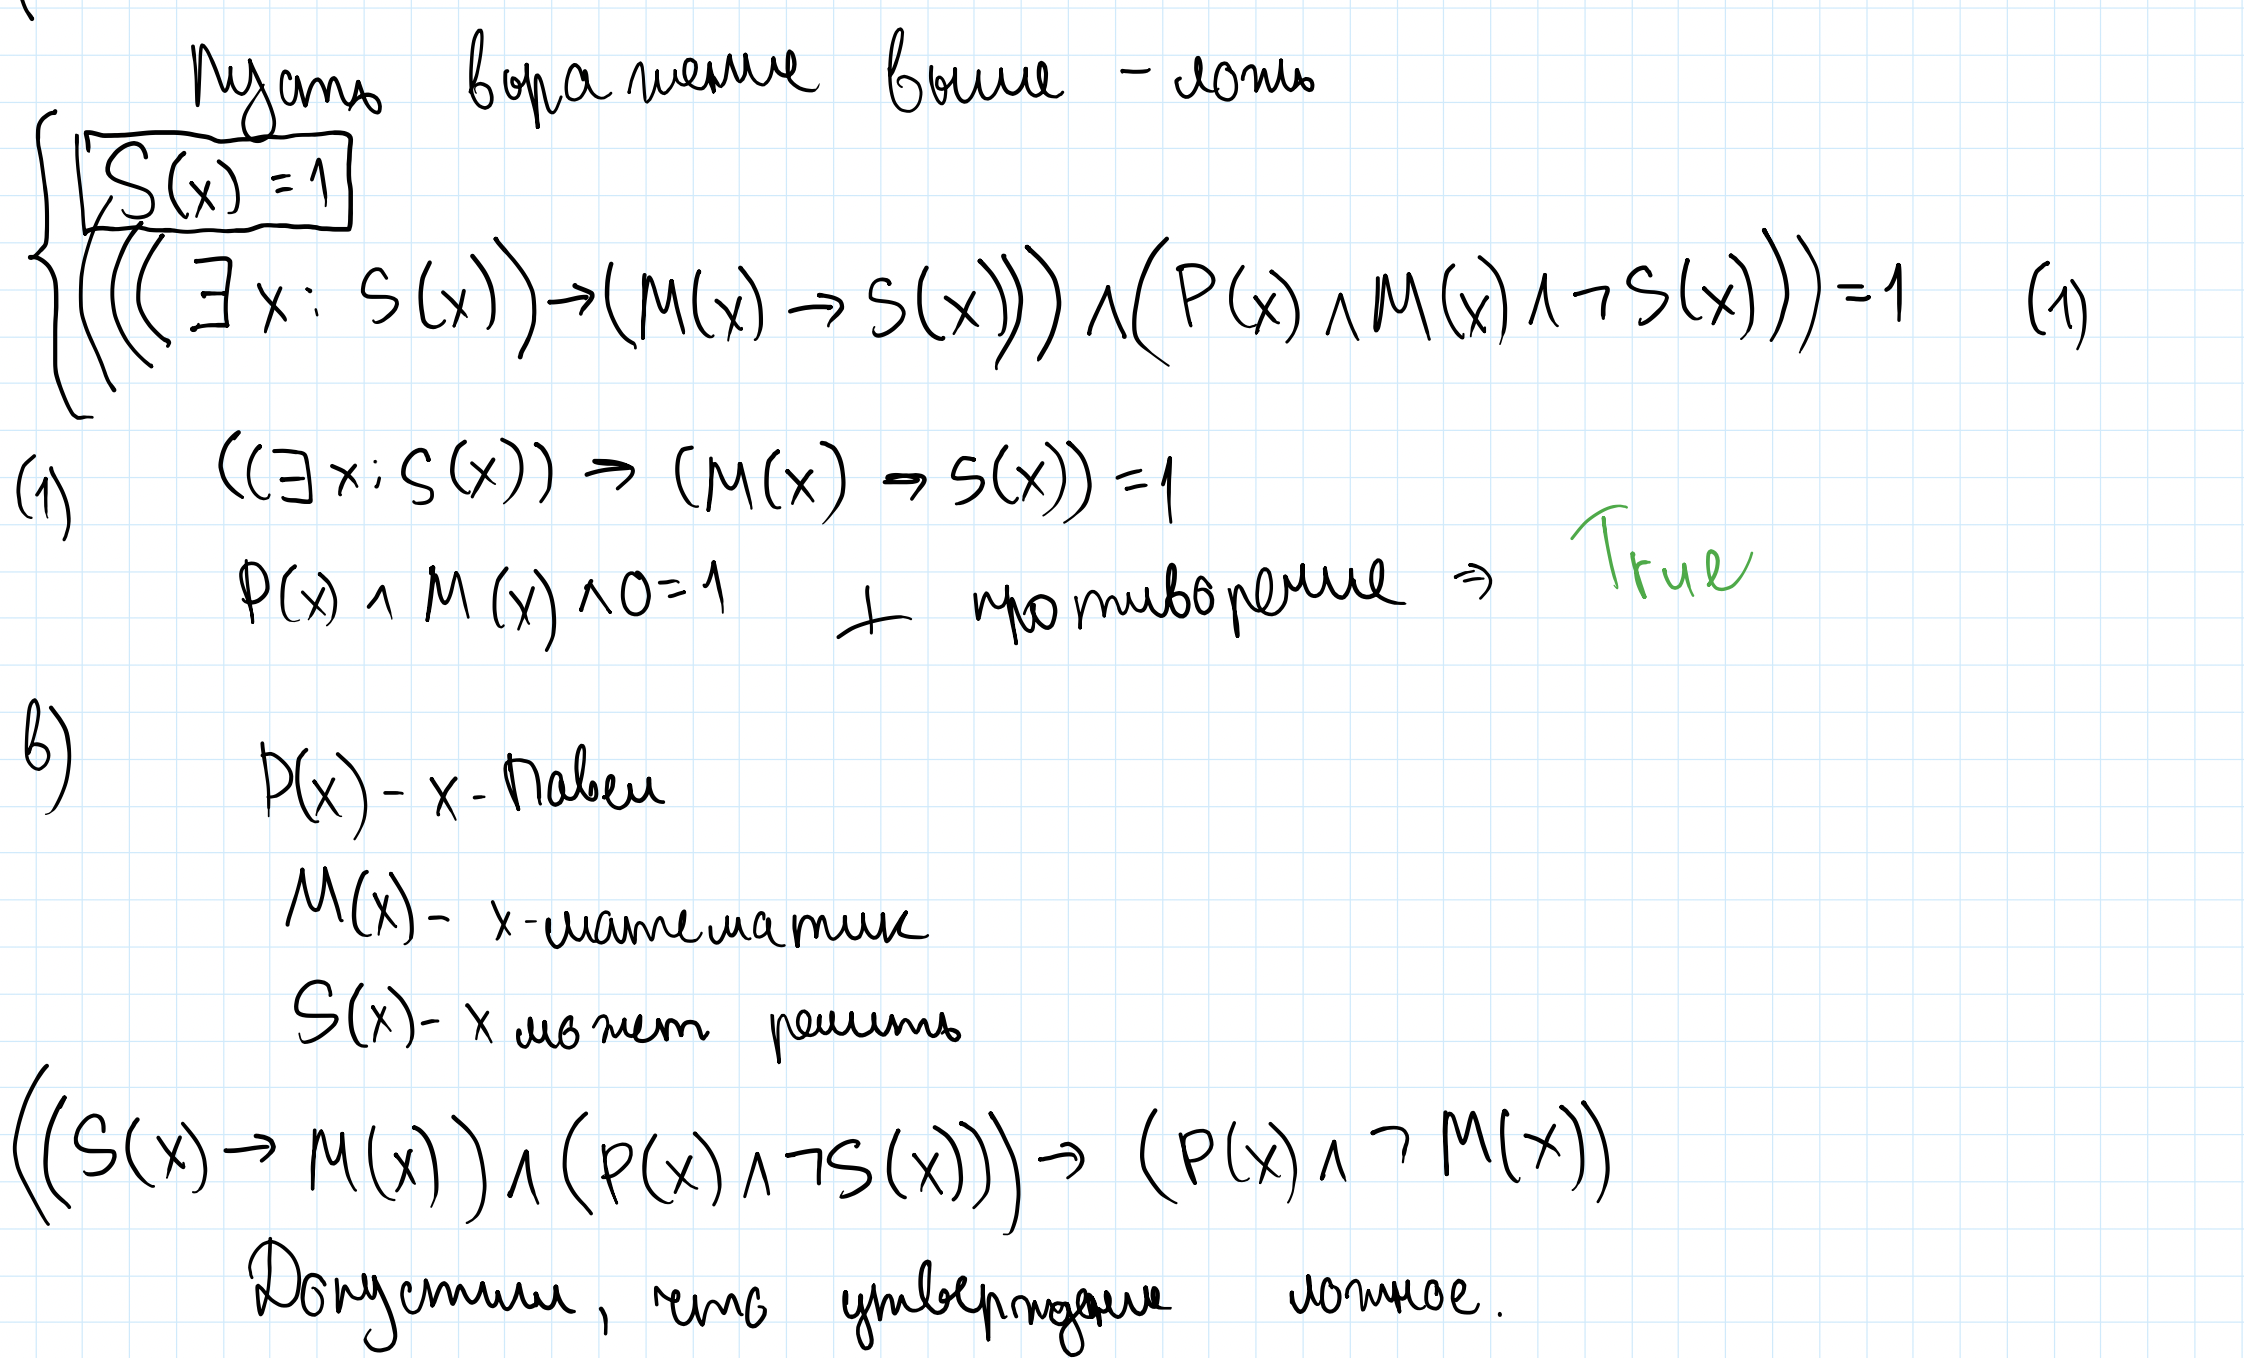 Пусть выражение выше - ложь
S(x) = 1
(((∃x: S(x)) → (M(x) → S(x))) ∧ (P(x) ∧ M(x) ∧ ¬S(x))) = 1 (1)
(1) ((∃x: S(x)) → (M(x) → S(x)) = 1
P(x) ∧ M(x) ∧ 0 = 1 ⊥ противоречие ⇒ True
в)
P(x) - x - Павел
M(x) - x - математик
S(x) - x может решить
((S(x) → M(x)) ∧ (P(x) ∧ ¬S(x))) → (P(x) ∧ ¬M(x))
Допустим, что утверждение ложное.